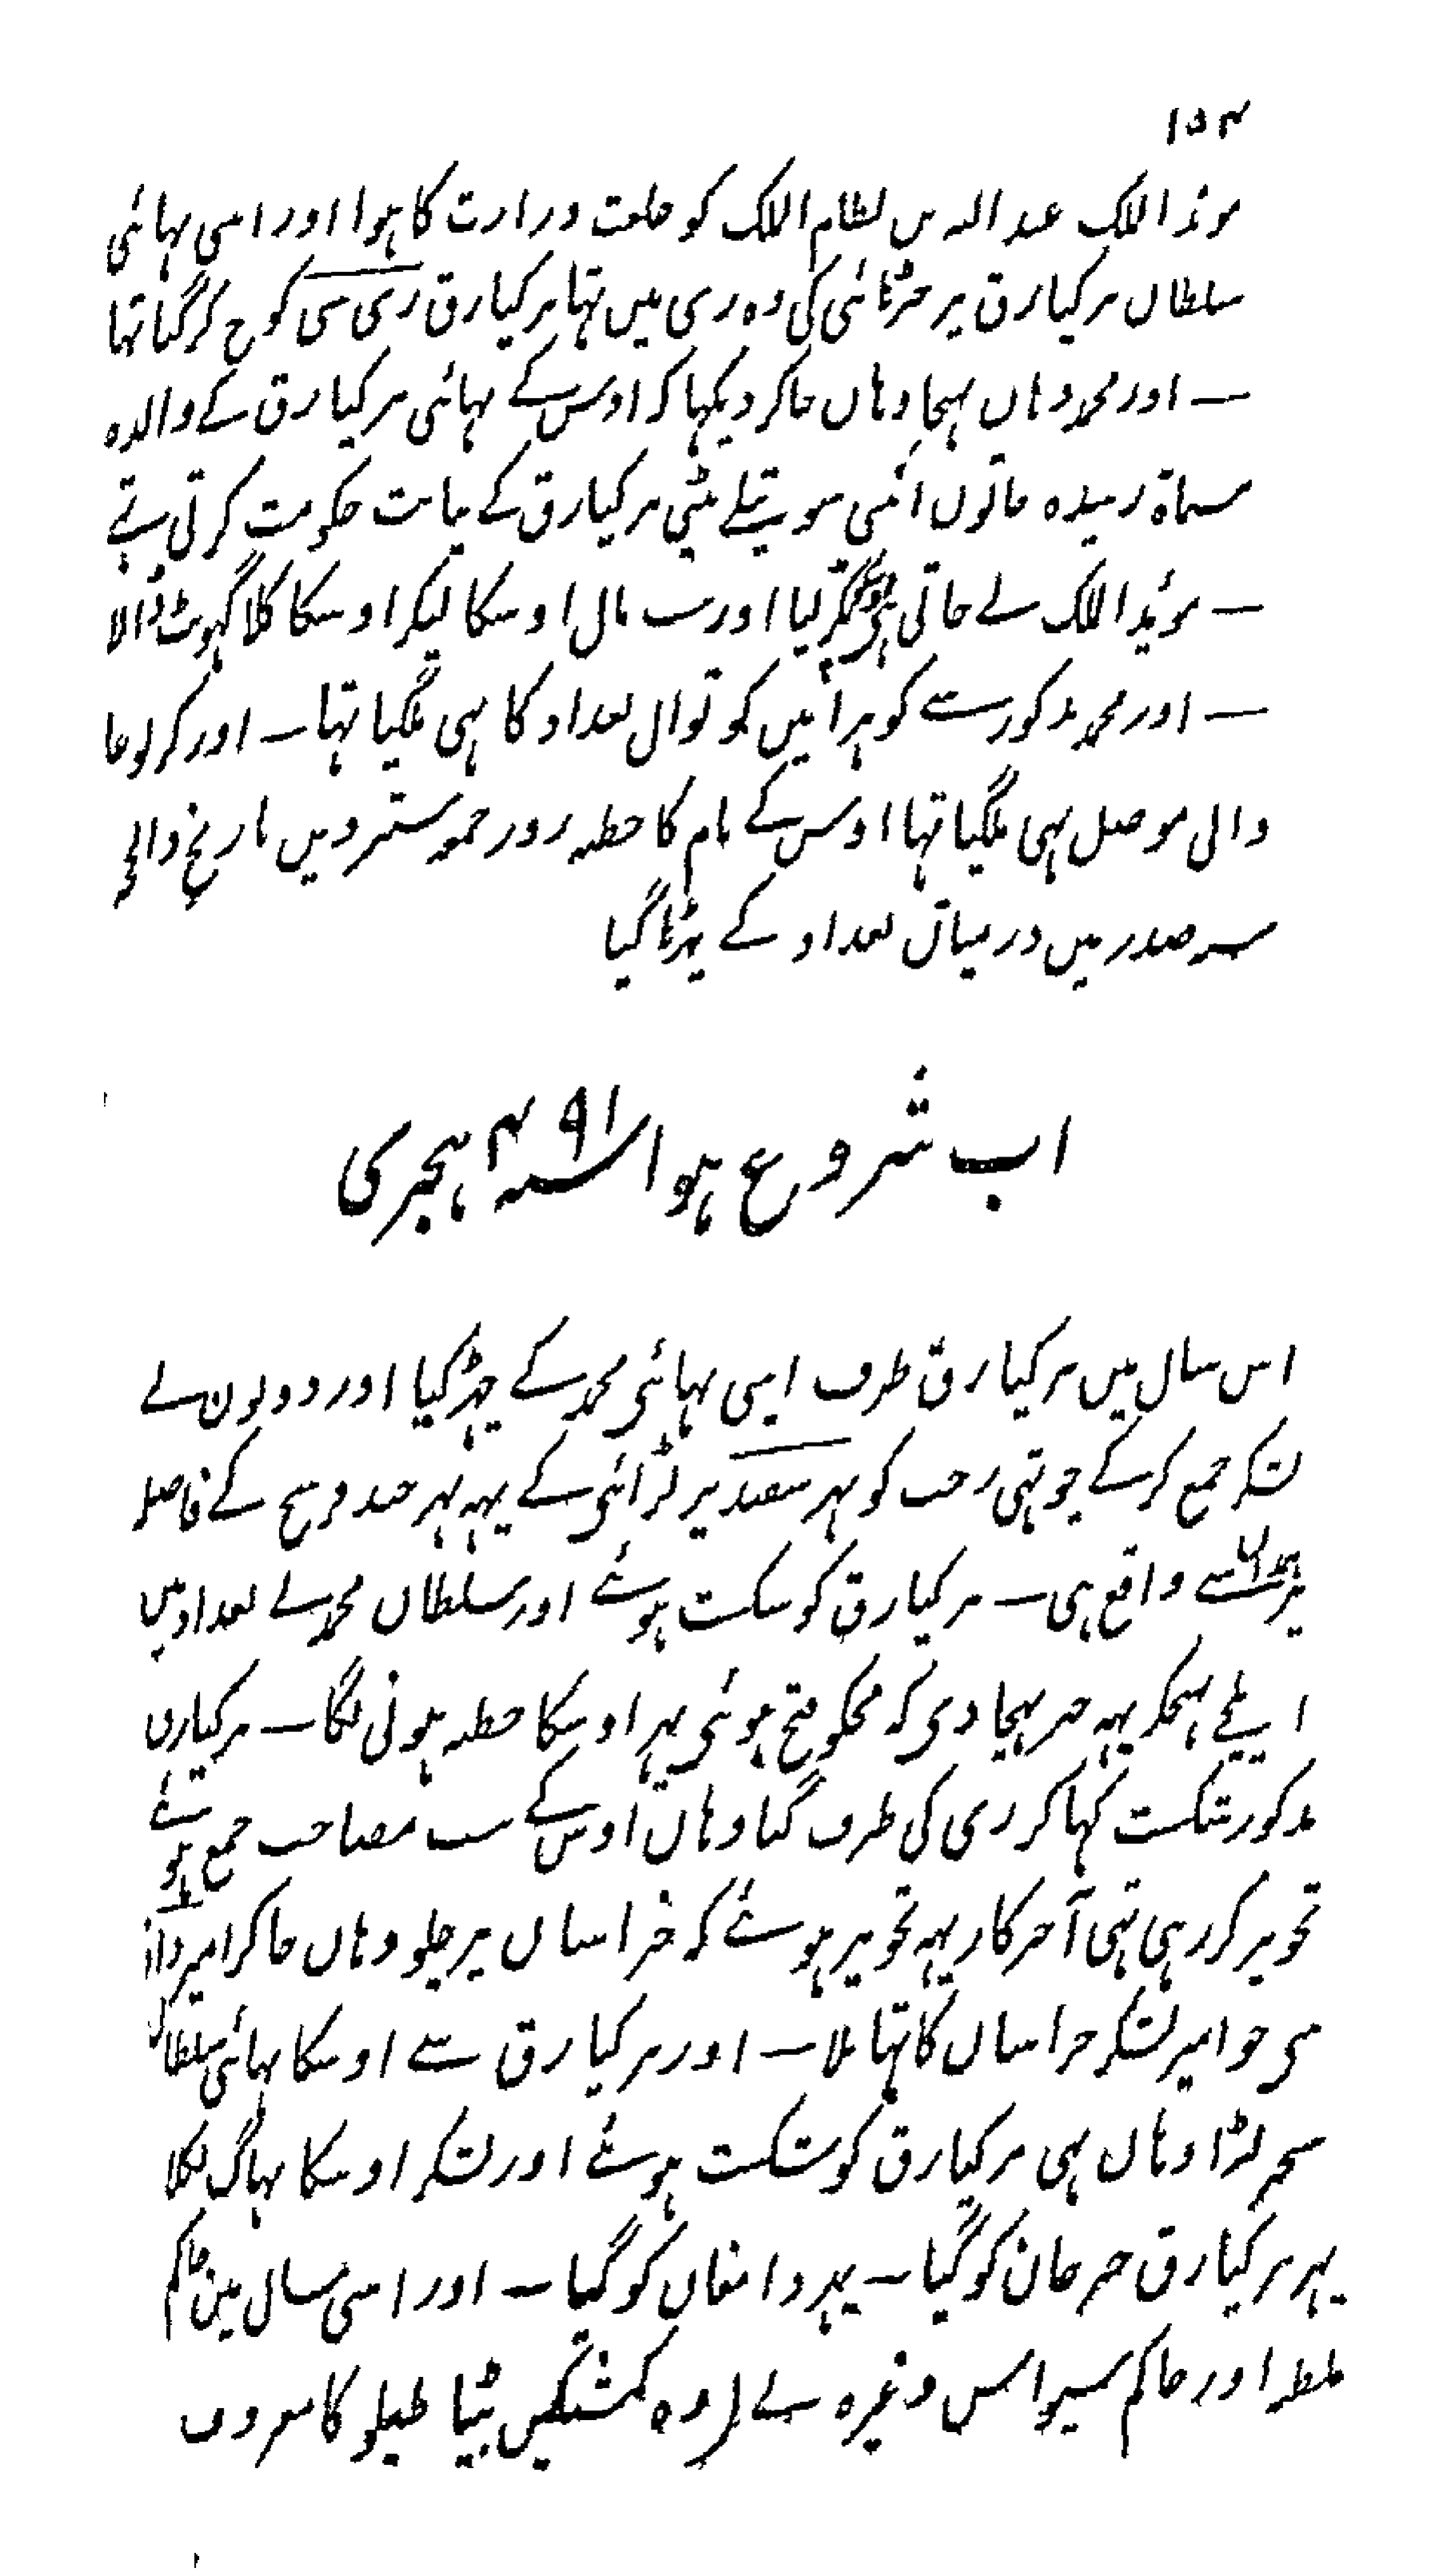 ۱۵۴
موئد الملک عبد اللہ بن نظام الملک کو خلعت وزارت کا ہوا اور اسی بہائی
سلطان برکیارق پر چڑھائی کی وہ ری میں تہا برکیارق ری سی کوچ کر گیا تہا
– اور محمد وہاں پہنچا وہاں جاکر دیکہا کہ اوس کے بہائی برکیارق کے والدہ
مسماۃ زبیدہ خاتون اپنی سوتیلے بیٹی برکیارق کے نیابت حکومت کرتی ہے
– موئد الملک نے جاتی ہی پکڑ لیا اور سب مال اوسکا لیکر اوسکا گلا گہونٹ ڈالا
– اور محمد مذکور سے کوہر آئین کوتوال بغداد کا بہی ملگیا تہا – اور کربوغا
والی موصل بہی ملگیا تہا اوس کے نام کا خطبہ روز جمعہ سترویں تاریخ ذالحجہ
سنہ صدر میں درمیان بغداد کے پڑھا گیا
اب شروع ہوا سنہ ۴۹۱ ہجری
اس سال میں برکیارق طرف اپنی بہائی محمد کے چڑھ گیا اور دونوں نے
لشکر جمع کرکے چوتہی رجب کو نہر سفید پر لڑائی کے یہہ نہر چند فرسخ کے فاصلہ
ہمدان سے واقع ہی – برکیارق کو شکست ہوئے اور سلطان محمد نے بغداد میں
ایلچی بہیجکر یہہ خبر پہنچا دی کہ مجکو فتح ہوئی پہر اوسکا خطبہ ہونی لگا – برکیارق
مذکور شکست کہا کر ری کی طرف گیا وہاں اوس کے سب مصاحب جمع ہوئے
تجویز کر رہی تہی آخر کار یہہ تجویز ہوئے کہ خراسان پر چلو وہاں جاکر امیر داذ
سی جو امیر لشکر خراسان کا تہا ملا – اور برکیارق سے اوسکا بہائی سلطان
سنجر لڑا وہاں بہی برکیارق کو شکست ہوئے اور لشکر اوسکا بہاگ نکلا
پہر برکیارق جرجان کو گیا – پہر دامغان کو گیا – اور اسی سال میں حاکم
ملطیہ اور حاکم سیواس وغیرہ نے (وہ کمشتکین بیٹا طیلو کا معروف